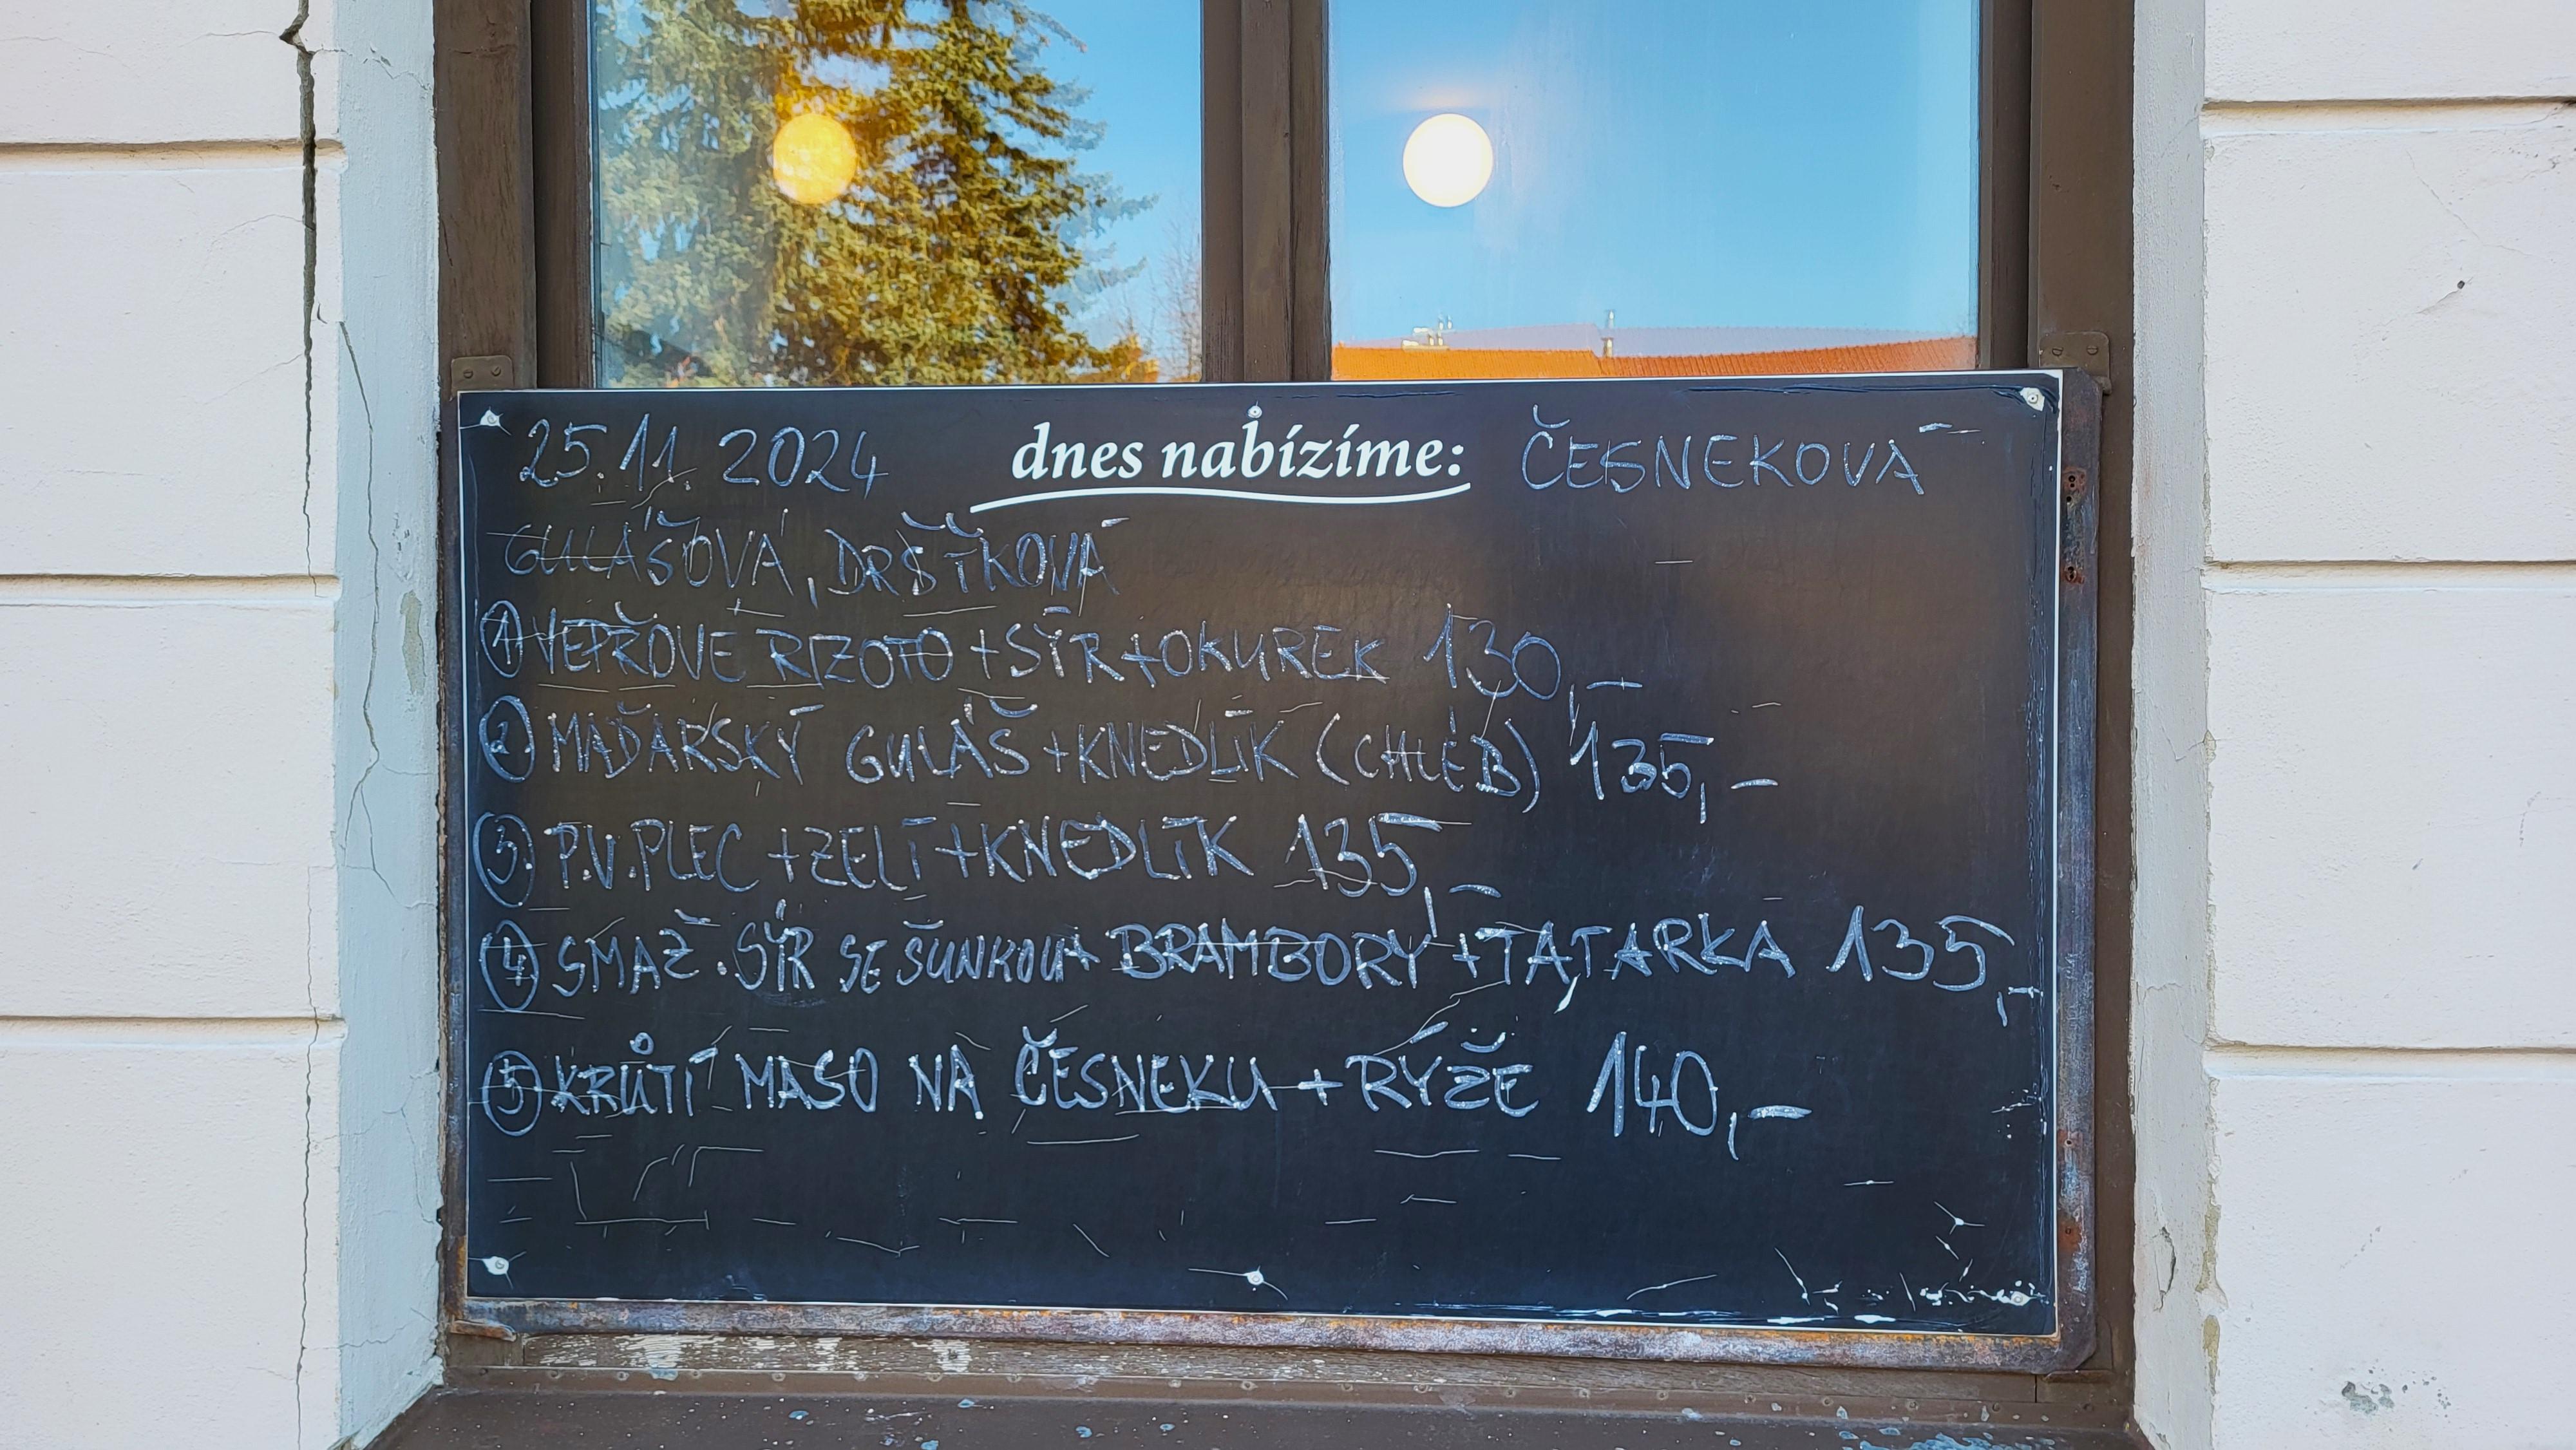 25.11. 2024 dnes nabízíme: ČESNEKOVÁ
GULÁŠOVÁ, DRŠŤKOVÁ
1 VEPŘOVÉ RIZOTO + SÝR + OKUREK 130,-
2. MAĎARSKÝ GULÁŠ + KNEDLÍK (CHLÉB) 135,-
3. P.V. PLEC + ZELÍ + KNEDLÍK 135,-
4 SMAŽ. SÝR SE ŠUNKOU + BRAMBORY + TATARKA 135,-
5 KRŮTÍ MASO NA ČESNEKU + RÝŽE 140,-